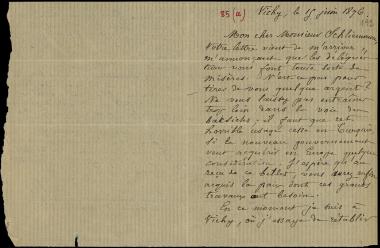 85 (a)
Vichy, le 15 juin 1876
192
Mon cher Monsieur Schliemann,
Votre lettre vient de m'arriver
m'annonçant que les délégués
turcs vous font toute sorte de
misères. N'est-ce pas pour
tirer de vous quelque argent?
Ne vous laissez pas entraîner
trop loin dans la voie du
bakchich; il faut que cet
horrible usage cesse en Turquie,
si le nouveau gouvernement
veut acquérir en Europe quelque
considération. J'espère qu'au
reçu de ce billet, vous aurez enfin
acquis la paix dont ces grands
travaux ont besoin.
En ce moment je suis à
Vichy, où j'essaye de rétablir